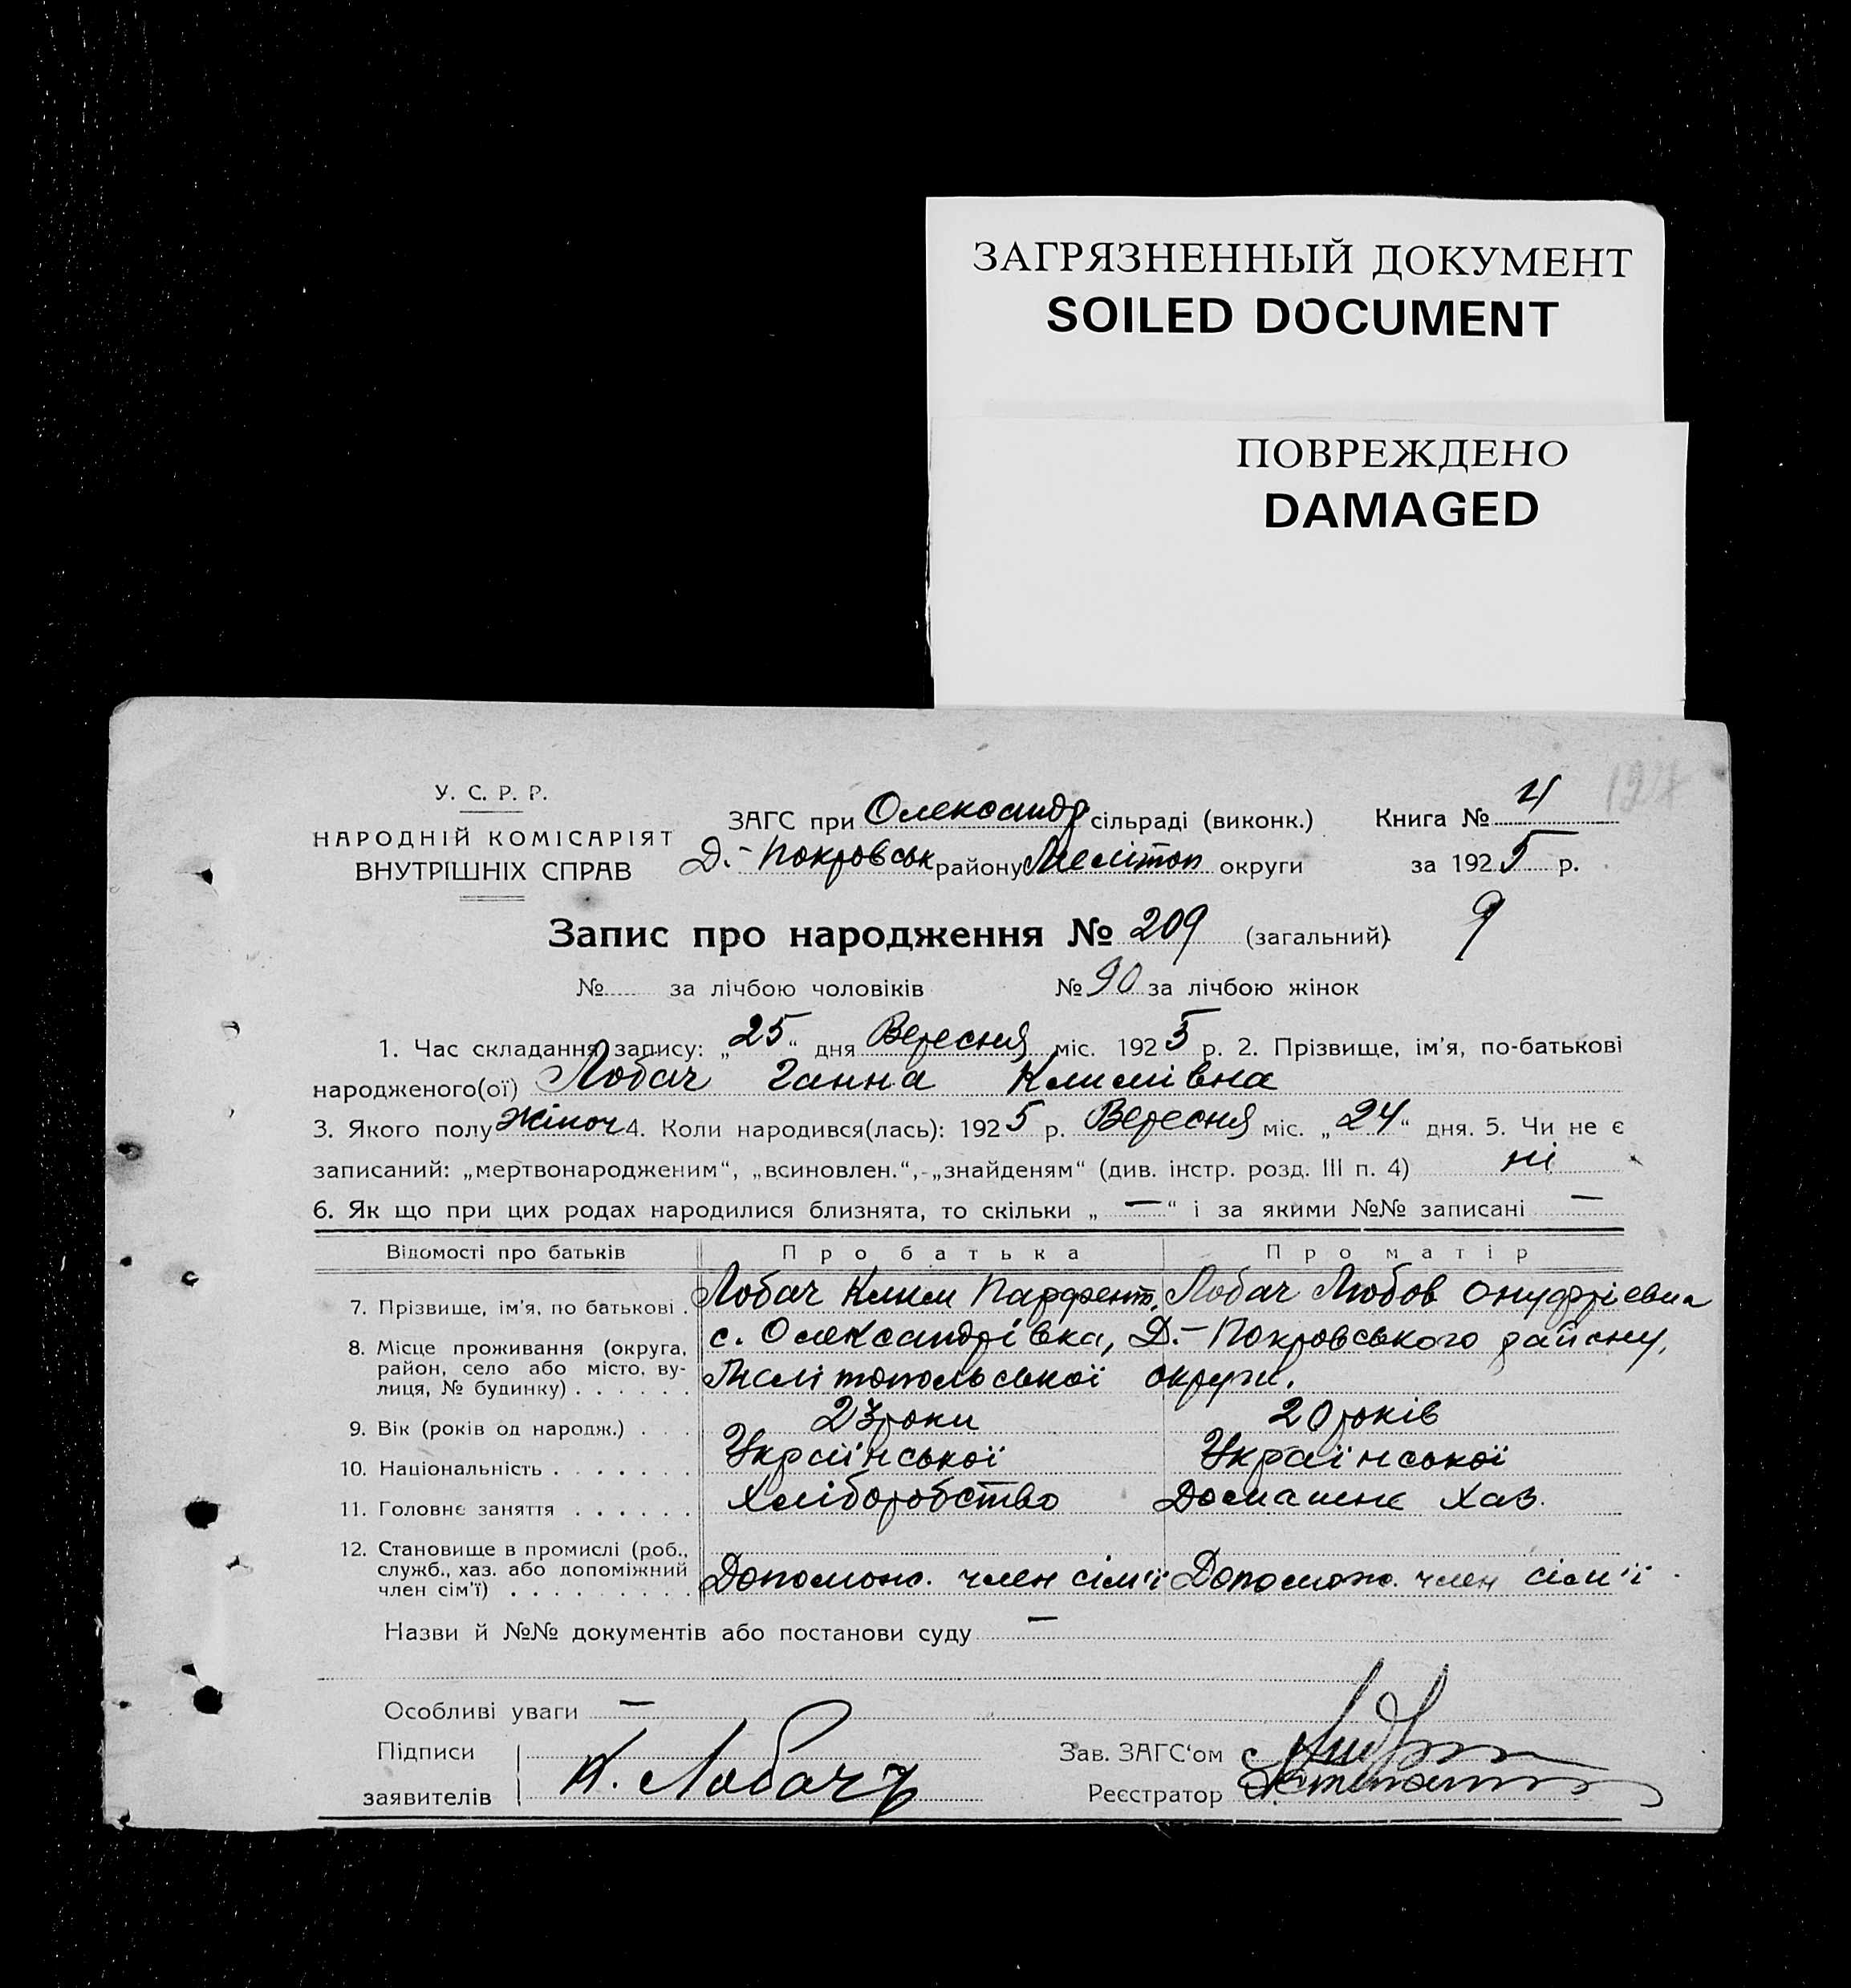 ЗАГРЯЗНЕННЫЙ ДОКУМЕНТ
SOILED DOCUMENT
ПОВРЕЖДЕНО
DAMAGED
У. С. Р. Р.
НАРОДНІЙ КОМІСАРІЯТ
ВНУТРІШНІХ СПРАВ
ЗАГС при Олександр сільраді (виконк.)
Д.-Покровськ району Меліт​оп округи
Книга № 4
за 1925 р.
Запис про народження № 209 (загальний)
9
№ за лічбою чоловіків № 90 за лічбою жінок
1. Час складання запису: „25“ дня Вересня міс. 1925 р. 2. Прізвище, ім'я, по-батькові
народженого(ої) Лобач Ганна Климівна
3. Якого полу Жіноч 4. Коли народився(лась): 1925 р. Вересня міс. „24“ дня. 5. Чи не є
записаний: „мертвонародженим“, „всиновлен.“, „знайденям“ (див. інстр. розд. III п. 4) ні
6. Як що при цих родах народилися близнята, то скільки „—“ і за якими №№ записані —
Відомості про батьків Про батька Про матір
7. Прізвище, ім'я, по батькові . Лобач Клим Парфент. Лобач Любов Онуфріевна
8. Місце проживання (округа, район, село або місто, вулиця, № будинку) . . . . . . с. Олександрівка, Д.-Покровського району,
Мелітопольської округи.
9. Вік (років од народж.) . . . 23 роки 20 років
10. Національність . . . . . . . Української Української
11. Головнє заняття . . . . . . Хліборобство Домашнє Хаз.
12. Становище в промислі (роб., служб., хаз. або допоміжний член сім'ї) . . . . . . . . . Допомож. член сім'ї Допомож. член сім'ї
Назви й №№ документів або постанови суду —
Особливі уваги —
Підписи
заявителів К. Лобач
Зав. ЗАГС'ом
Реєстратор